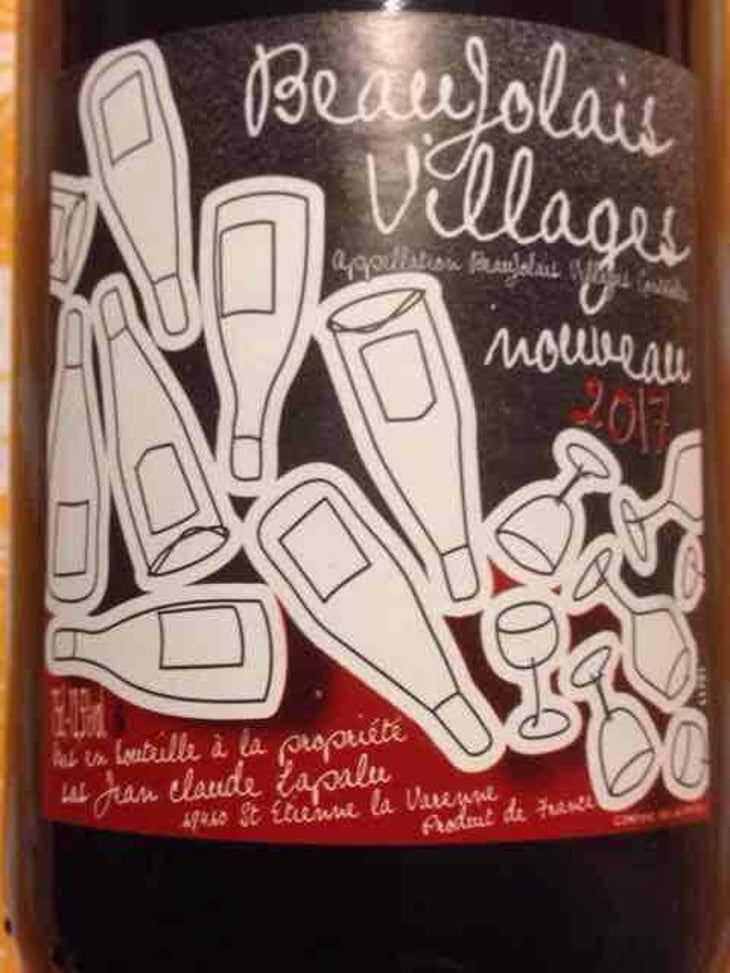 BeauJolais
Villages
Appellation BeauJolais Villages Contrôlée
nouveau
2017
Mis en bouteille à la propriété
sas Jean claude Lapalu
69460 St Etienne la Varenne
Produit de France